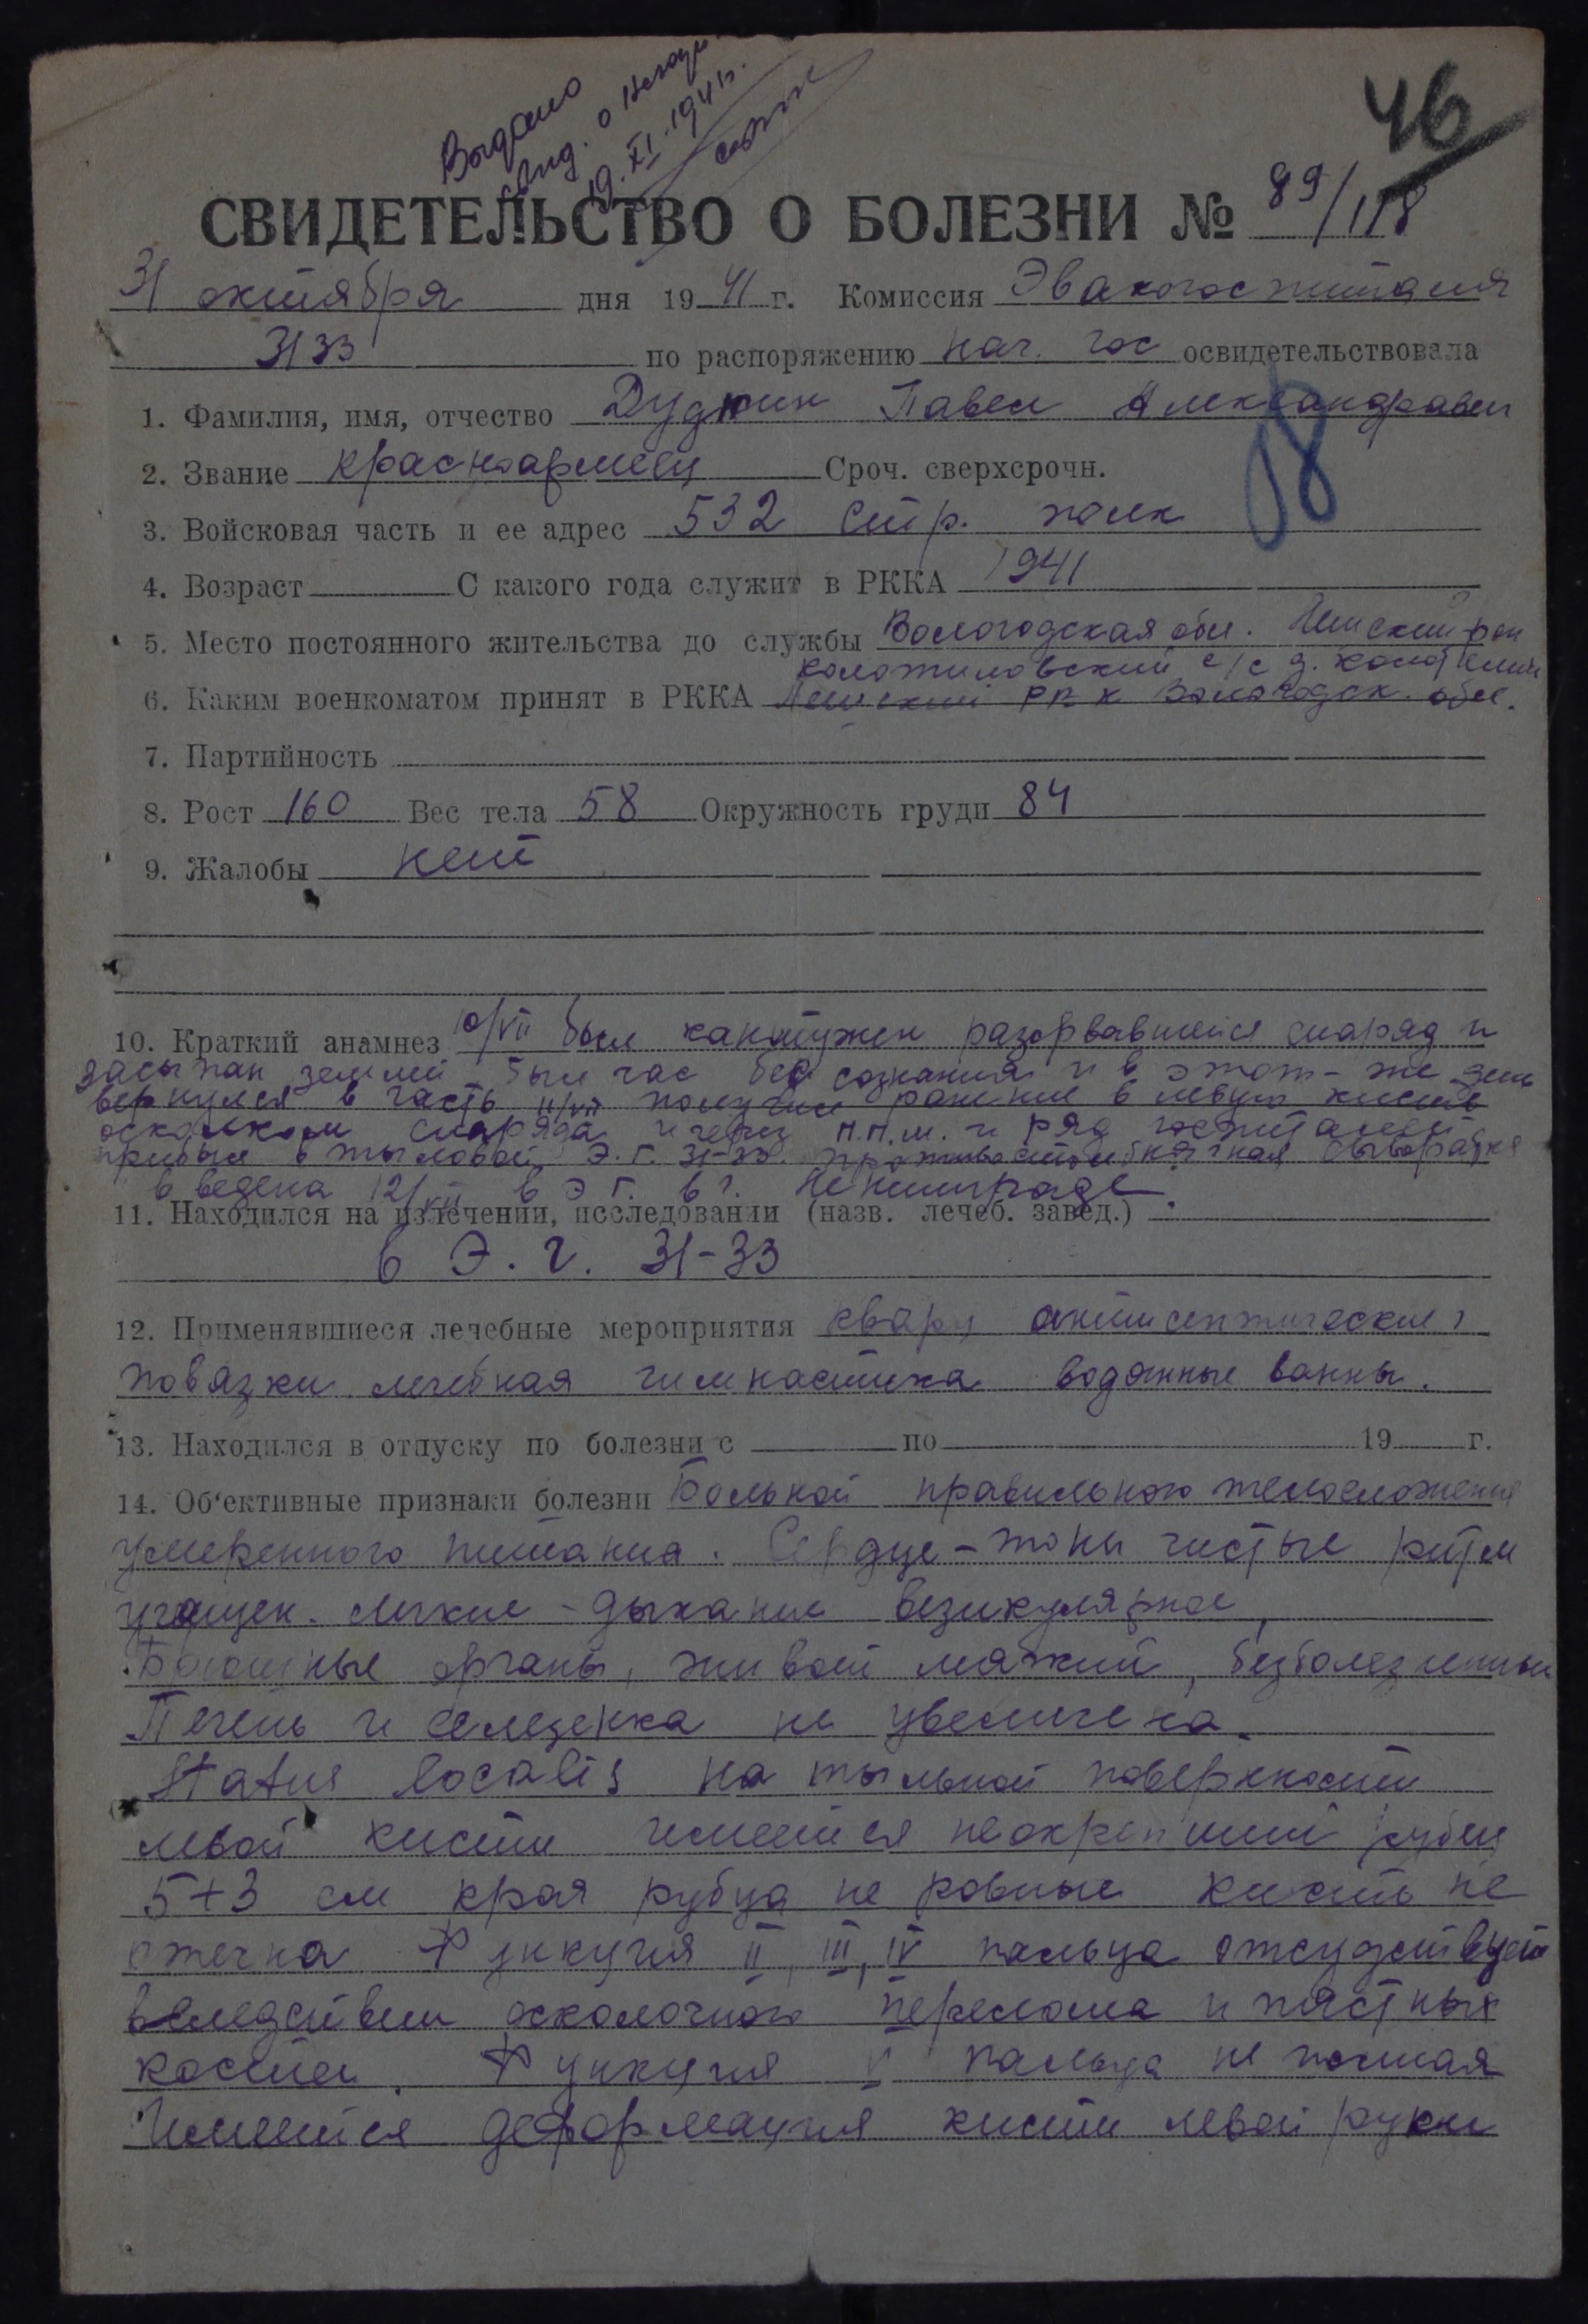 46
Выдано
инд. о
19.XI.1941г.
СВИДЕТЕЛЬСТВО О БОЛЕЗНИ № 89/118
31 октября дня 1941 г. Комиссия Эвакогоспиталя
3133 по распоряжению нач. гос освидетельствовала
1. Фамилия, имя, отчество Дудкин Павел Александравич
2. Звание красноармеец Сроч. сверхсрочн.
18
3. Войсковая часть и ее адрес 532 стр. полк
4. Возраст С какого года служит в РККА 1941
5. Место постоянного жительства до службы Вологодская обл. рон
с/с д.
6. Каким военкоматом принят в РККА РВК Вологодск. обл.
7. Партийность
8. Рост 160 Вес тела 58 Окружность груди 84
9. Жалобы нет
10. Краткий анамнез 10/VII был кантужен разорвавшейся снаряд и
засыпан землей был час без сознания и в этот-же день
вернулся в часть 11/VII получил ранение в левую кисть
осколком снаряда и через п.п.м. и ряд госпиталей
прибыл в тыловой Э.Г. 31-33. противостолбнячная сыворатка
введена 12/VII в Э Г. в г. Ленинграде.
11. Находился на излечении, исследовании (назв. лечеб. завед.)
в Э. г. 31-33
12. Применявшиеся лечебные мероприятия кварц антисептические
повязки лечебная гимнастика водянные ванны.
13. Находился в отпуску по болезни с по 19 г.
14. Об'ективные признаки болезни Больной правильного телосложения
умеренного питания. Сердце – тоны чистые ритм
учащен. Легкие – дыхание везикулярное,
Брюшные органы, живот мягкий, безболезненный
Печень и селезенка не увеличена.
Status localis на тыльной поверхности
левой кисти имеется неокрепший рубец
5+3 см края рубца не ровные кисть не
отечна Функция II, III, IV пальца отсудствует
вследствии осколочного перелома и пястных
костей. Функция V пальца не полная
Имеется деформация кисти левой руки